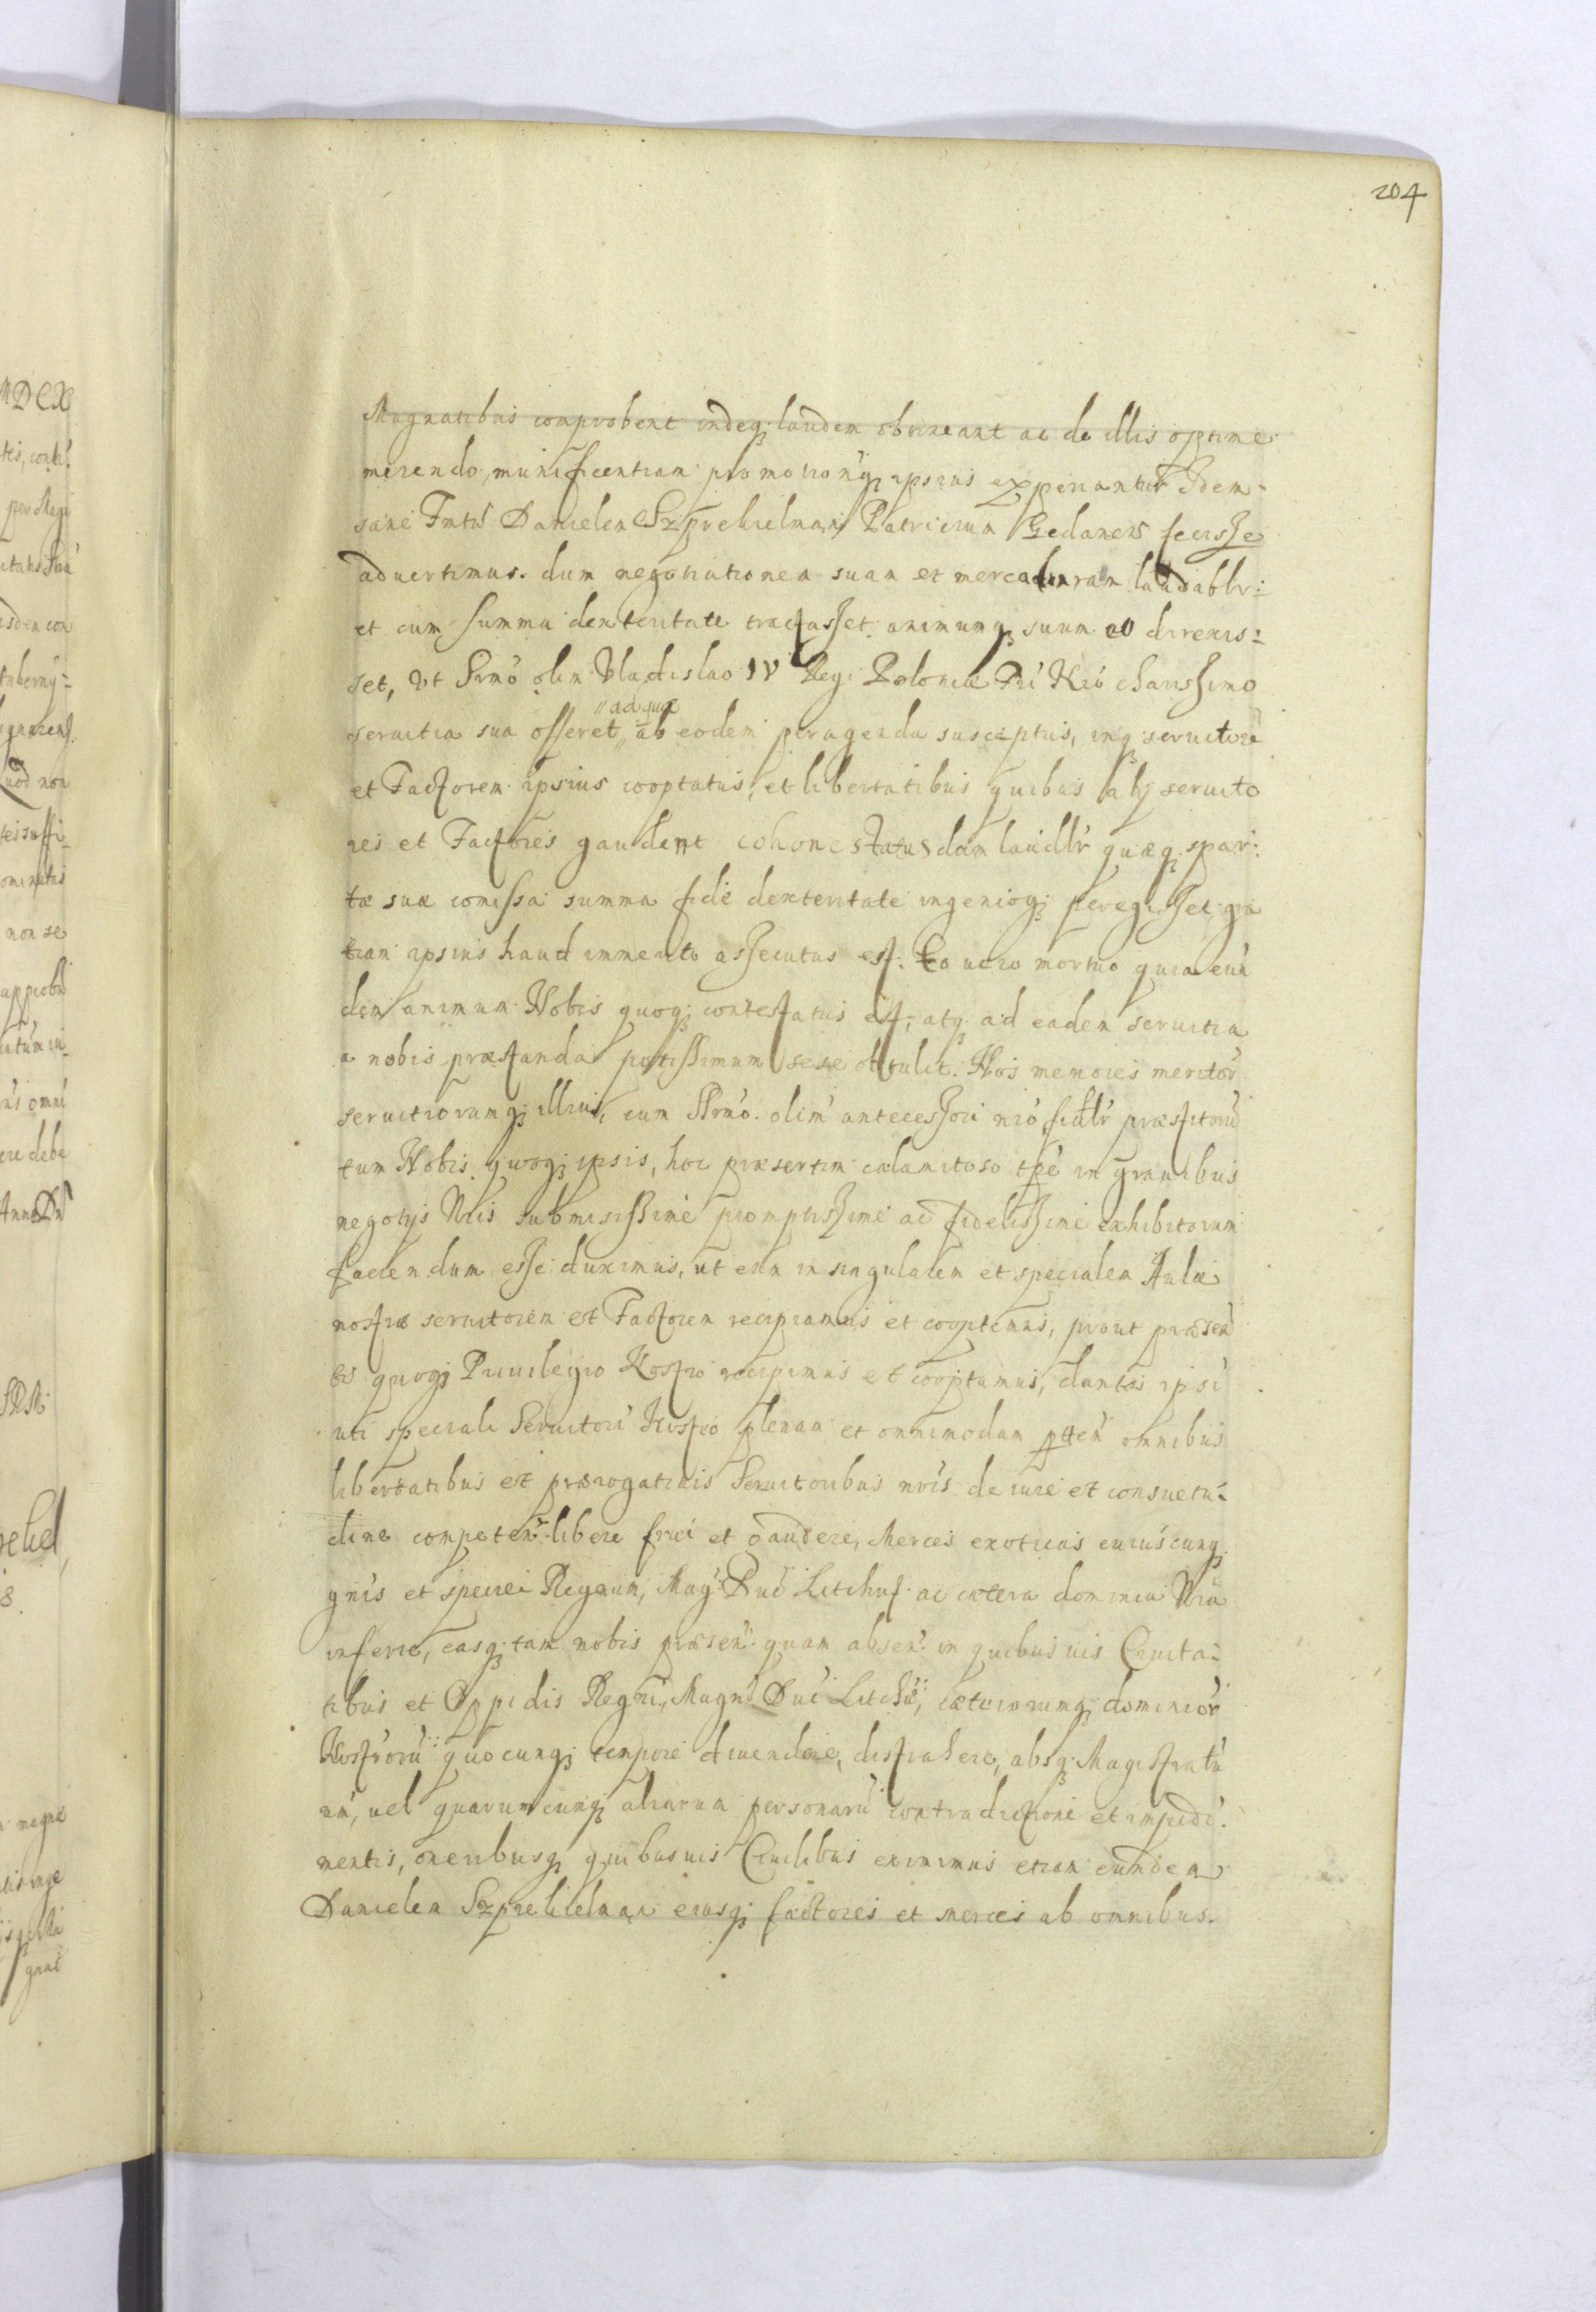 204
Magnatibus comprobent indeq; laudem obtineant ac de illis optime
merendo, munificentiam promotionq; ipsius experiantur Idem
sane Fmtũ Danielem Szprekielman Patricium Gedanen feciſse
aduertimus. dum negotiationem suam et mercaturam laudabblr:
et cum summa dexteritate tractaſset animumq; suum eo direxis:
set, Vt Srmo olim Vladislao IV Regi Poloniæ Fri Nro chariſsimo
seruitia sua offeret, ad quæ ab eodem peragenda susceptus, inq; seruitore
et Factorem ipsius cooptatus, et libertatibus quibus alij seruito
res et Factores gaudent cohonestatus dum laudblr quæq; spar:
tæ suæ comiſsa summa fide dexteritate ingenioq; peregiſset gra
tiam ipsius haud immerito aſsecutus est. Eo uero mortuo quia eun
dem animum Nobis quoq; contestatus est, atq; ad eadem seruitia
a nobis præstanda potiſsimum sese obtulit. Nos memores meritor
seruitiorumq; illius, cum Srmo. olim anteceſsori nro fidlr præstitorũ
tum Nobis quoq; ipsis, hoc præsertim calamitoso tpe in grauibus
negotijs Nris submisiſsime promptiſsime ac fideliſsime exhibitorum
faciendum eſse duximus, ut eum in singularem et specialem Aulæ
nostræ seruitorem et Factorem recipiamus et cooptemus, prout præsen
tis quoq; Priuilegio Nostro recipimus et cooptamus, dantes ipsi
uti speciali Seruitori Nostro plenam et omnimodam ptten omnibus
libertatibus et prærogatiuis Seruitoribus nris de iure et consuetu:
dine competen. libere frui et gaudere, Merces exoticas cuiuscunq;
gnis et speciei Regnum, Mag. Duc Litthuſ. ac cætera dominia Nra
inferre, easq; tam nobis præsen. quam absen. in quibusuis Ciuita:
tibus et Oppidis Regni, Magni Duc Litthũ, cæterorumq; dominior
Nostrorũ quocunq; tempore diuendere, distrahere, absq; Magistratu
um, uel quarumcunq; aliarum personarũ contradictione et impedi.
mentis, oneribusq; quibusuis Ciuilibus eximimus etiam eundem
Danielem Szprekielman eiusq; factores et merces ab omnibus.